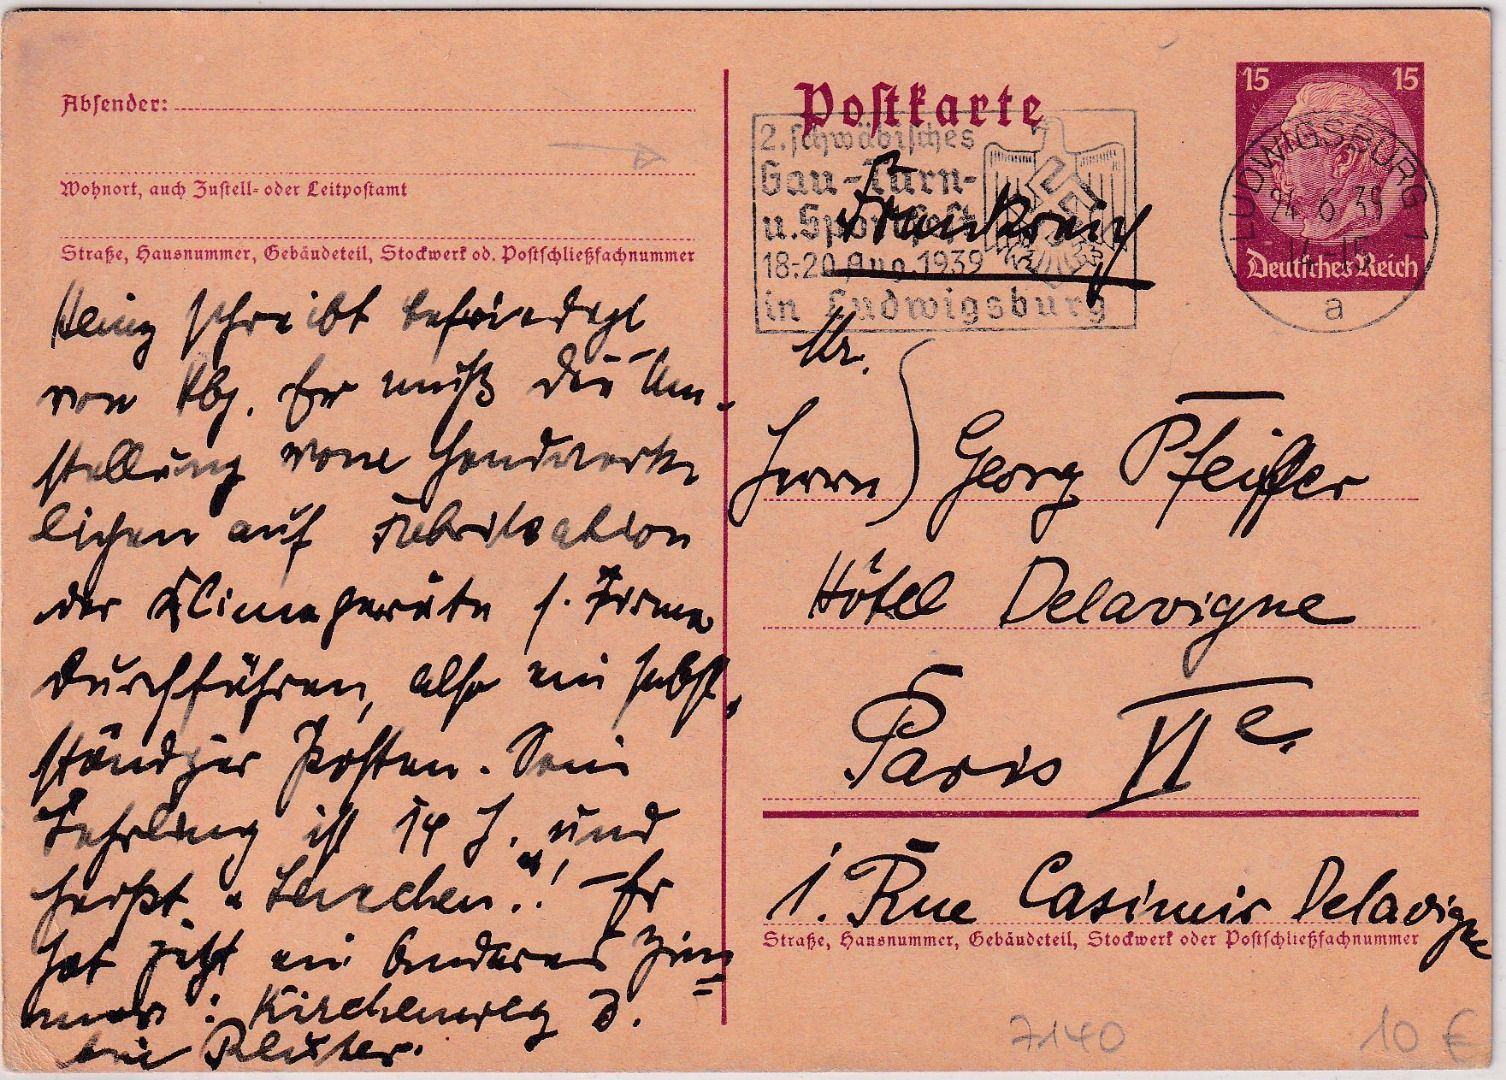 Absender:
Wohnort, auch Zustell- oder Leitpostamt
Straße, Hausnummer, Gebäudeteil, Stockwerk od. Postschließfachnummer
Heinz schreibt befriedigt
von Abg. Er muß die Um-
stellung vom handwerk-
lichen auf Fabrikation
der Klimageräte s. Firma
durchführen, also ein selbst-
ständiger Posten. Sein
Lehrling ist 14 J. und
heißt „Lerchen“! – Er
hat jetzt ein anderes Zim-
mer: Kirchenweg 3.
bei Reuter.
Postkarte
2. schwäbisches
Gau-Turn-
u. Sportfest
18.-20. Aug. 1939
in Ludwigsburg
Frankreich
15 15
Deutsches Reich
LUDWIGSBURG 1
24.6.39
14-15
a
Mr.
Herrn Georg Pfeiffer
Hôtel Delavigne
Paris VIe
1. Rue Casimir Delavigne
Straße, Hausnummer, Gebäudeteil, Stockwerk oder Postschließfachnummer
7140
10 €